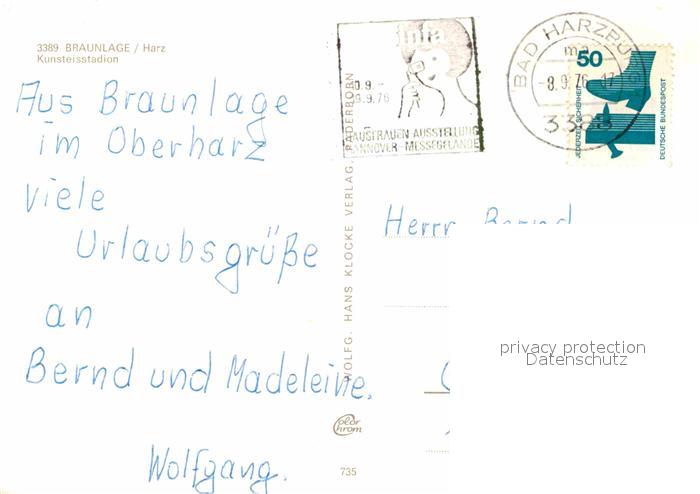 3389 BRAUNLAGE / Harz
Kunsteisstadion
Aus Braunlage
im Oberharz
viele
Urlaubsgrüße
an
Bernd und Madeleine.
Wolfgang.
WOLFG. HANS KLOCKE VERLAG PADERBORN
Color
Chrom
735
infa
9.9.76
HAUSFRAUEN-AUSSTELLUNG
HANNOVER-MESSEGELÄNDE
BAD HARZBU
ma
-8.9.76-17
3388
50
JEDERZEIT SICHERHEIT
DEUTSCHE BUNDESPOST
Herrn Bernd
privacy protection
Datenschutz